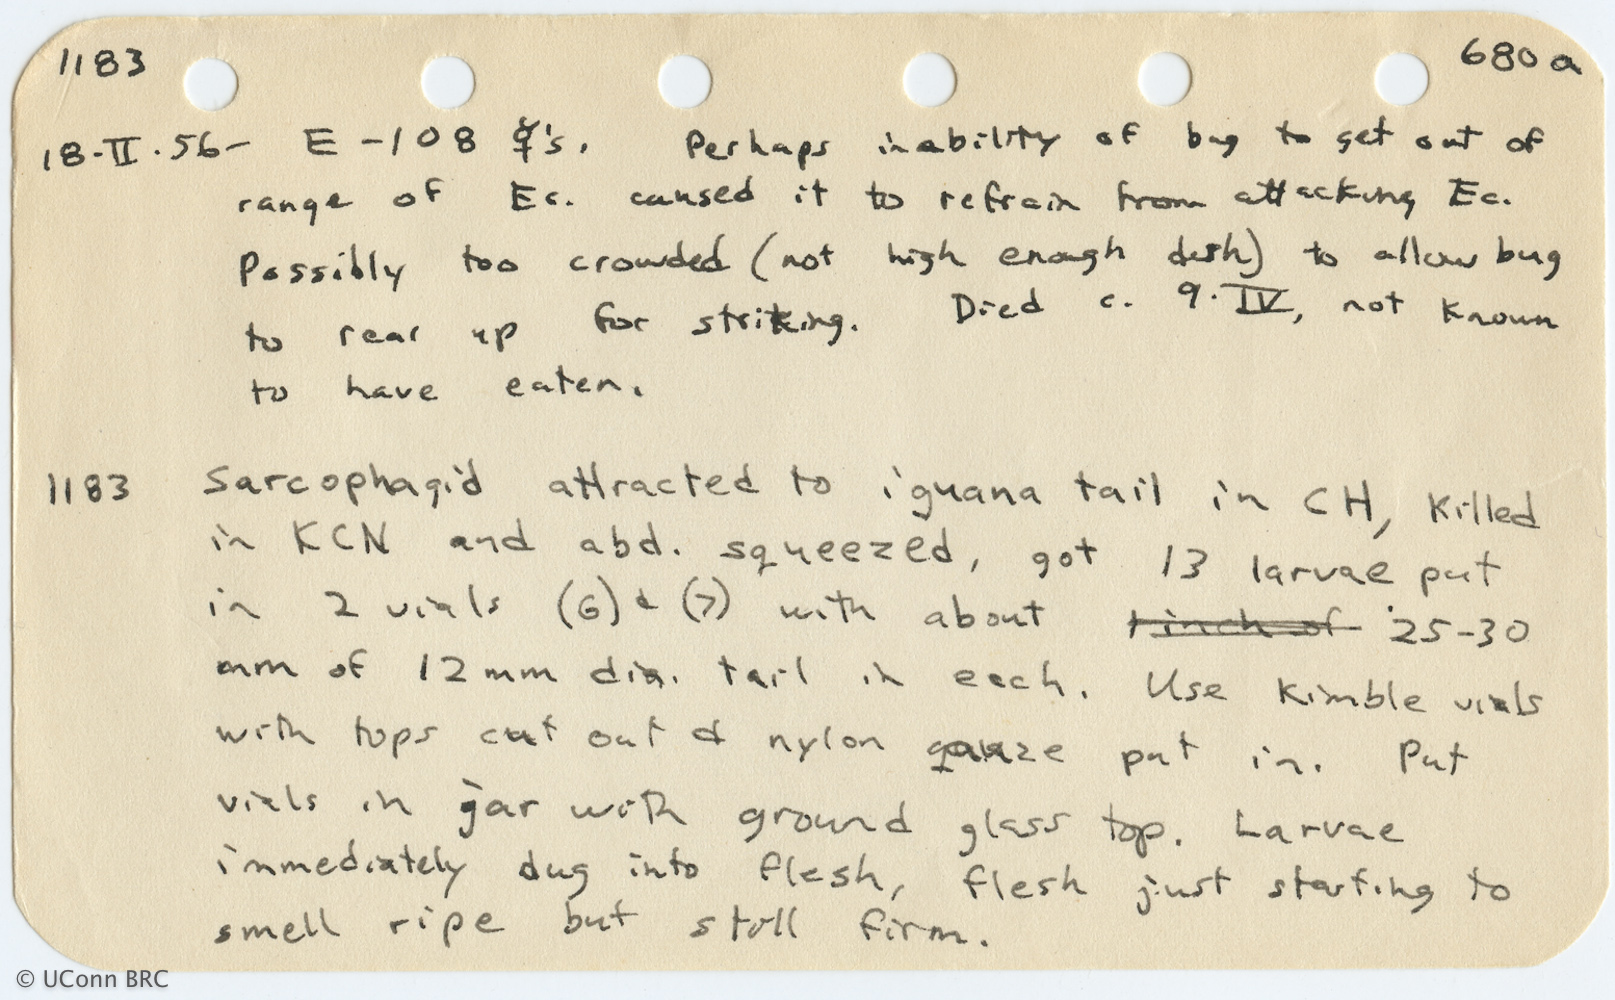 1183 680a
18-II.56- E-108 ☿'s. Perhaps inability of bug to get out of
range of Ec. caused it to refrain from attacking Ec.
Possibly too crowded (not high enough dish) to allow bug
to rear up for striking. Died c. 9.IV, not known
to have eaten.
1183 Sarcophagid attracted to iguana tail in CH, killed
in KCN and abd. squeezed, got 13 larvae put
in 2 vials (6) & (7) with about 1 inch of 25-30
mm of 12mm dia. tail in each. Use Kimble vials
with tops cut out & nylon gauze put in. Put
vials in jar with ground glass top. Larvae
immediately dug into flesh, flesh just starting to
smell ripe but still firm.
© UConn BRC